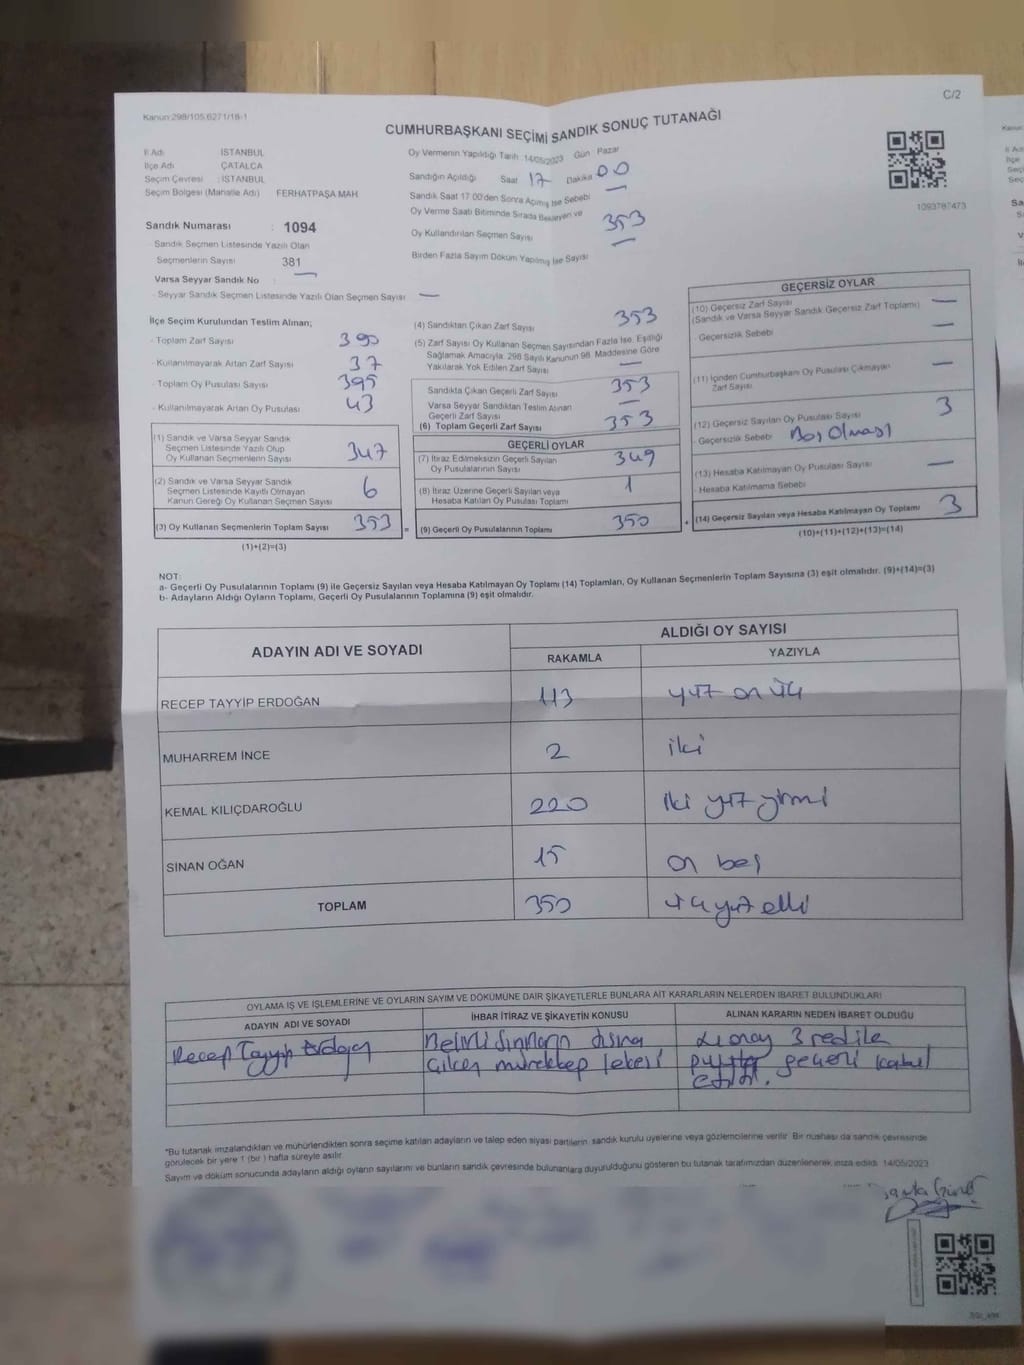 C/2
Kanun:298/105,6271/18-1
CUMHURBAŞKANI SEÇİMİ SANDIK SONUÇ TUTANAĞI
İl Adı İSTANBUL
İlçe Adı ÇATALCA
Seçim Çevresi : İSTANBUL
Seçim Bölgesi (Mahalle Adı) FERHATPAŞA MAH
Sandık Numarası : 1094
- Sandık Seçmen Listesinde Yazılı Olan
Seçmenlerin Sayısı 381
Varsa Seyyar Sandık No :
- Seyyar Sandık Seçmen Listesinde Yazılı Olan Seçmen Sayısı —
Oy Vermenin Yapıldığı Tarih 14/05/2023 Gün Pazar
Sandığın Açıldığı Saat 17 Dakika 00
Sandık Saat 17:00'den Sonra Açılmış İse Sebebi —
Oy Verme Saati Bitiminde Sırada Bekleyen ve
Oy Kullandırılan Seçmen Sayısı 353
Birden Fazla Sayım Döküm Yapılmış İse Sayısı —
1093787473
İlçe Seçim Kurulundan Teslim Alınan;
- Toplam Zarf Sayısı 390
- Kullanılmayarak Artan Zarf Sayısı 37
- Toplam Oy Pusulası Sayısı 395
- Kullanılmayarak Artan Oy Pusulası 43
(1) Sandık ve Varsa Seyyar Sandık
Seçmen Listesinde Yazılı Olup
Oy Kullanan Seçmenlerin Sayısı 347
(2) Sandık ve Varsa Seyyar Sandık
Seçmen Listesinde Kayıtlı Olmayan
Kanun Gereği Oy Kullanan Seçmen Sayısı 6
(3) Oy Kullanan Seçmenlerin Toplam Sayısı 353 =
(1)+(2)=(3)
(4) Sandıktan Çıkan Zarf Sayısı 353
(5) Zarf Sayısı Oy Kullanan Seçmen Sayısından Fazla İse, Eşitliği
Sağlamak Amacıyla, 298 Sayılı Kanunun 98. Maddesine Göre
Yakılarak Yok Edilen Zarf Sayısı —
Sandıkta Çıkan Geçerli Zarf Sayısı 353
Varsa Seyyar Sandıktan Teslim Alınan
Geçerli Zarf Sayısı —
(6) Toplam Geçerli Zarf Sayısı 353
GEÇERLİ OYLAR
(7) İtiraz Edilmeksizin Geçerli Sayılan
Oy Pusulalarının Sayısı 349
(8) İtiraz Üzerine Geçerli Sayılan veya
Hesaba Katılan Oy Pusulası Toplamı 1
(9) Geçerli Oy Pusulalarının Toplamı 350 +
GEÇERSİZ OYLAR
(10) Geçersiz Zarf Sayısı
(Sandık ve Varsa Seyyar Sandık Geçersiz Zarf Toplamı) —
- Geçersizlik Sebebi —
(11) İçinden Cumhurbaşkanı Oy Pusulası Çıkmayan
Zarf Sayısı —
(12) Geçersiz Sayılan Oy Pusulası Sayısı 3
- Geçersizlik Sebebi Boş Olması
(13) Hesaba Katılmayan Oy Pusulası Sayısı —
- Hesaba Katılmama Sebebi
(14) Geçersiz Sayılan veya Hesaba Katılmayan Oy Toplamı 3
(10)+(11)+(12)+(13)=(14)
NOT:
a- Geçerli Oy Pusulalarının Toplamı (9) ile Geçersiz Sayılan veya Hesaba Katılmayan Oy Toplamı (14) Toplamları, Oy Kullanan Seçmenlerin Toplam Sayısına (3) eşit olmalıdır. (9)+(14)=(3)
b- Adayların Aldığı Oyların Toplamı, Geçerli Oy Pusulalarının Toplamına (9) eşit olmalıdır.
ADAYIN ADI VE SOYADI ALDIĞI OY SAYISI
RAKAMLA YAZIYLA
RECEP TAYYİP ERDOĞAN 113 yüz on üç
MUHARREM İNCE 2 iki
KEMAL KILIÇDAROĞLU 220 iki yüz yirmi
SİNAN OĞAN 15 on beş
TOPLAM 350 üç yüz elli
OYLAMA İŞ VE İŞLEMLERİNE VE OYLARIN SAYIM VE DÖKÜMÜNE DAİR ŞİKAYETLERLE BUNLARA AİT KARARLARIN NELERDEN İBARET BULUNDUKLARI
ADAYIN ADI VE SOYADI İHBAR İTİRAZ VE ŞİKAYETİN KONUSU ALINAN KARARIN NEDEN İBARET OLDUĞU
Recep Tayyip Erdoğan Belirli Sınırların dışına 4 onay 3 red ile
Çıkan mürekkep lekesi geçerli kabul
*Bu tutanak imzalandıktan ve mühürlendikten sonra seçime katılan adayların ve talep eden siyasi partilerin, sandık kurulu üyelerine veya gözlemcilerine verilir. Bir nüshası da sandık çevresinde
görülecek bir yere 1 (bir ) hafta süreyle asılır.
Sayım ve döküm sonucunda adayların aldığı oyların sayılarını ve bunların sandık çevresinde bulunanlara duyurulduğunu gösteren bu tutanak tarafımızdan düzenlenerek imza edildi. 14/05/2023